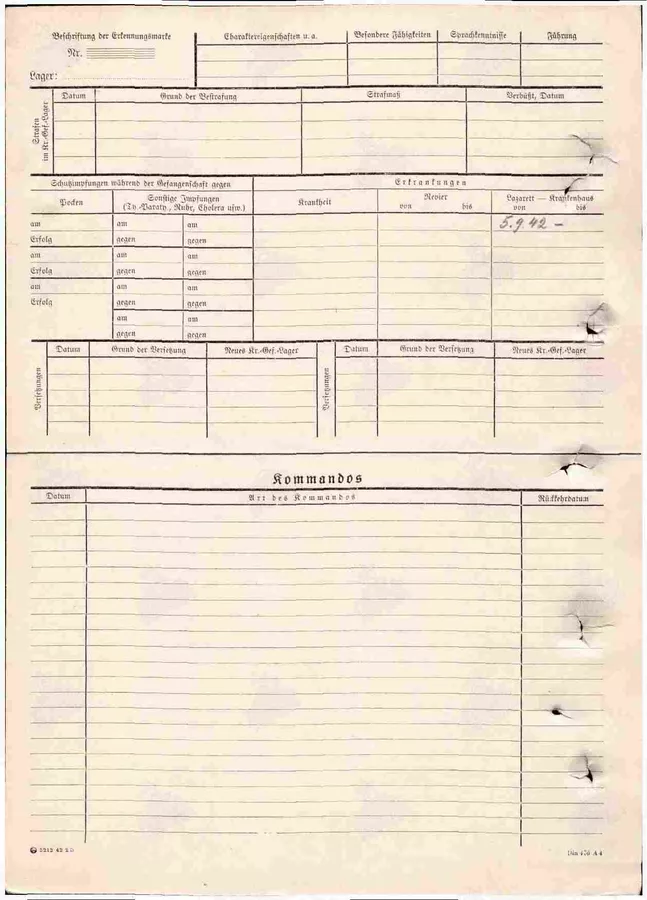 Beschriftung der Erkennungsmarke
Nr.
Lager:
Charaktereigenschaften u. a.
Besondere Fähigkeiten
Sprachkenntnisse
Führung
Strafen im Kr.-Gef.-Lager
Datum
Grund der Bestrafung
Strafmaß
Verbüßt, Datum
Schutzimpfungen während der Gefangenschaft gegen
Erkrankungen
Pocken
Sonstige Impfungen
(Ty.-Paraty., Ruhr, Cholera usw.)
Krankheit
Revier
von bis
Lazarett — Krankenhaus
von bis
am am am
5.9.42 —
Erfolg gegen gegen
am am am
Erfolg gegen gegen
am am am
Erfolg gegen gegen
am am
gegen gegen
Versetzungen
Datum
Grund der Versetzung
Neues Kr.-Gef.-Lager
Versetzungen
Datum
Grund der Versetzung
Neues Kr.-Gef.-Lager
Kommandos
Datum
Art des Kommandos
Rückkehrdatum
Din 476 A 4